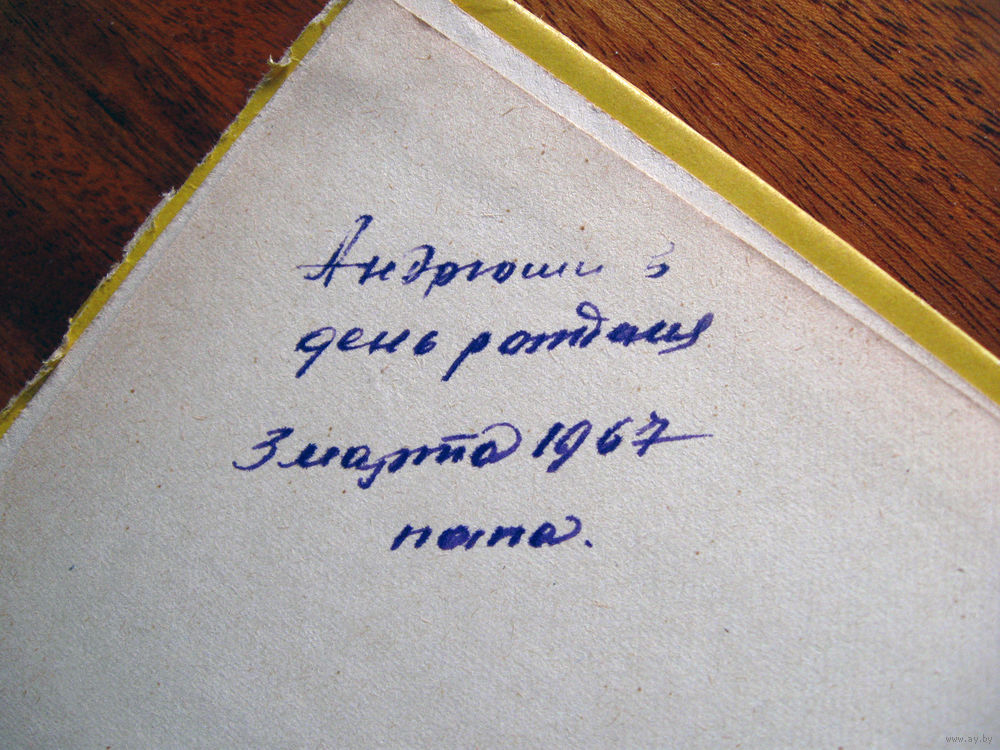 Андрюши в
день рождения
3 марта 1967
папа.
www.ay.by